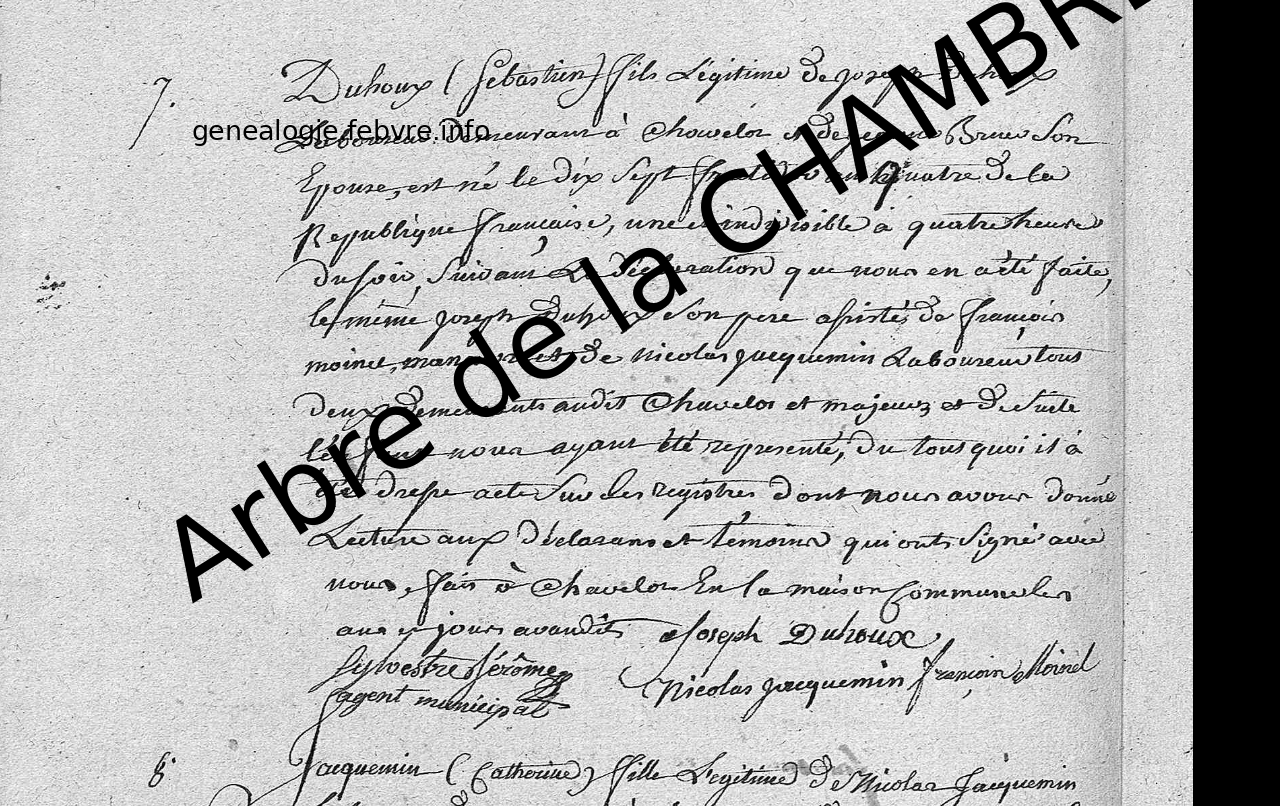 7. Duhoux (Sebastien) fils Légitime de joseph Duhoux
Laboureur demeurant à Chavelot et de Brun son
Epouse, est né le dix sept an quatre de la
Republique francaise, une et indivisible à quatre heure
du soir, suivant La déclaration que nous en a été faite,
le même joseph Duhoux son pere assisté de francois
moinel, manoeuvre et de Nicolas jacquemin Laboureur tous
deux demeurants audit Chavelot et majeurs et De suite
nous ayant été representé, du tous quoi il à
été dressé acte sur les Registres dont nous avons donné
Lecture aux déclarans et témoins qui ont signé avec
nous, fait à Chavelot En la maison Commune les
ans et jours avandits Joseph Duhoux
Sylvestre Jérôme
Nicolas jacquemin francoin Moinel
agent municipal
8. Jacquemin (Catherine) fille Legitime de Nicolas Jacquemin
genealogie.febvre.info
Arbre de la CHAMBRE